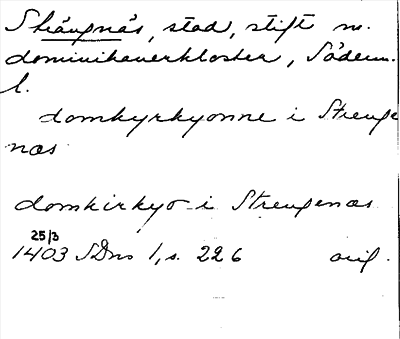 Strängnäs, stad, stift m.
dominikanerkloster, Söderm.
l.
domkyrkyonne i Strenge
næs
domkirkyo i Strengenæs
25/3
1403 SDns 1, s. 226 orig.